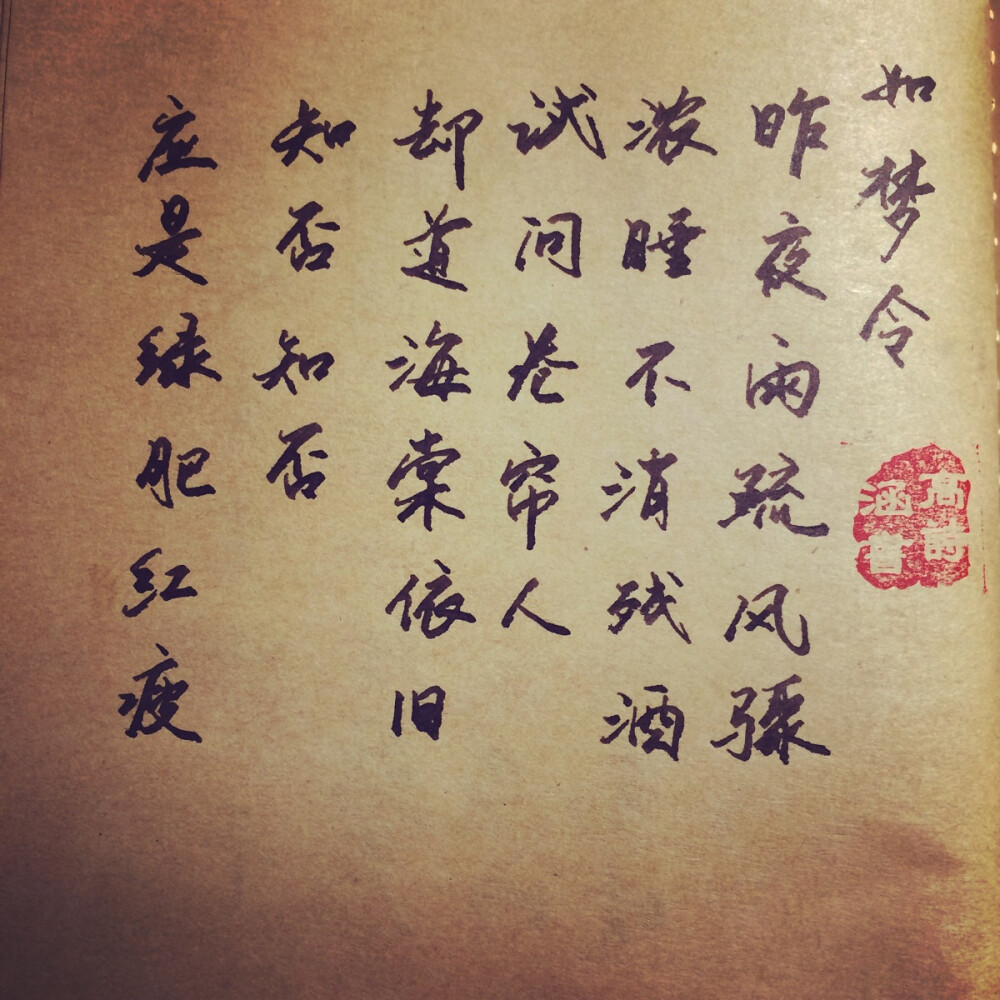 如梦令
昨夜雨疏风骤
浓睡不消残酒
试问卷帘人
却道海棠依旧
知否知否
应是绿肥红瘦
高詩
涵書